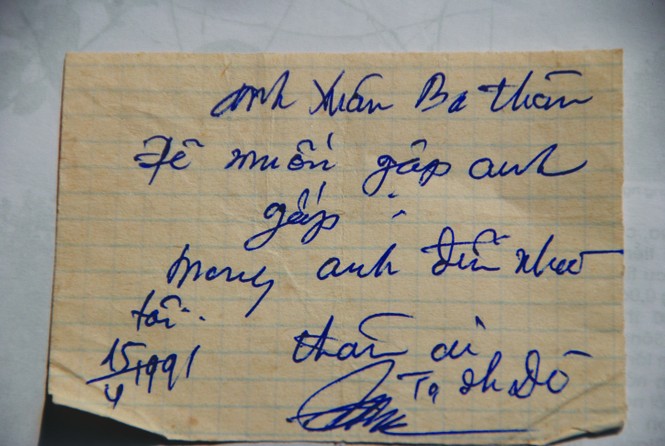 anh Xuân Ba thân
Đề muốn gặp anh
gấp :
mong anh đến nhà
tôi.
15/4 1991 thân ái